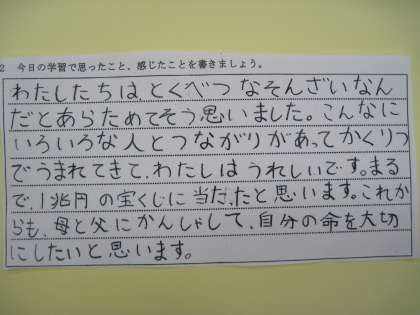 2 今日の学習で思ったこと、感じたことを書きましょう。
わたしたちは、とくべつ なそんざいなん
だとあらためてそう思いました。こんなに
いろいろな人とつながりがあってかくりつ
でうまれてきて、わたしはうれしいです。まる
で、1兆円の宝くじに当たったと思います。これか
らも、母と父にかんしゃして、自分の命を大切
にしたいと思います。